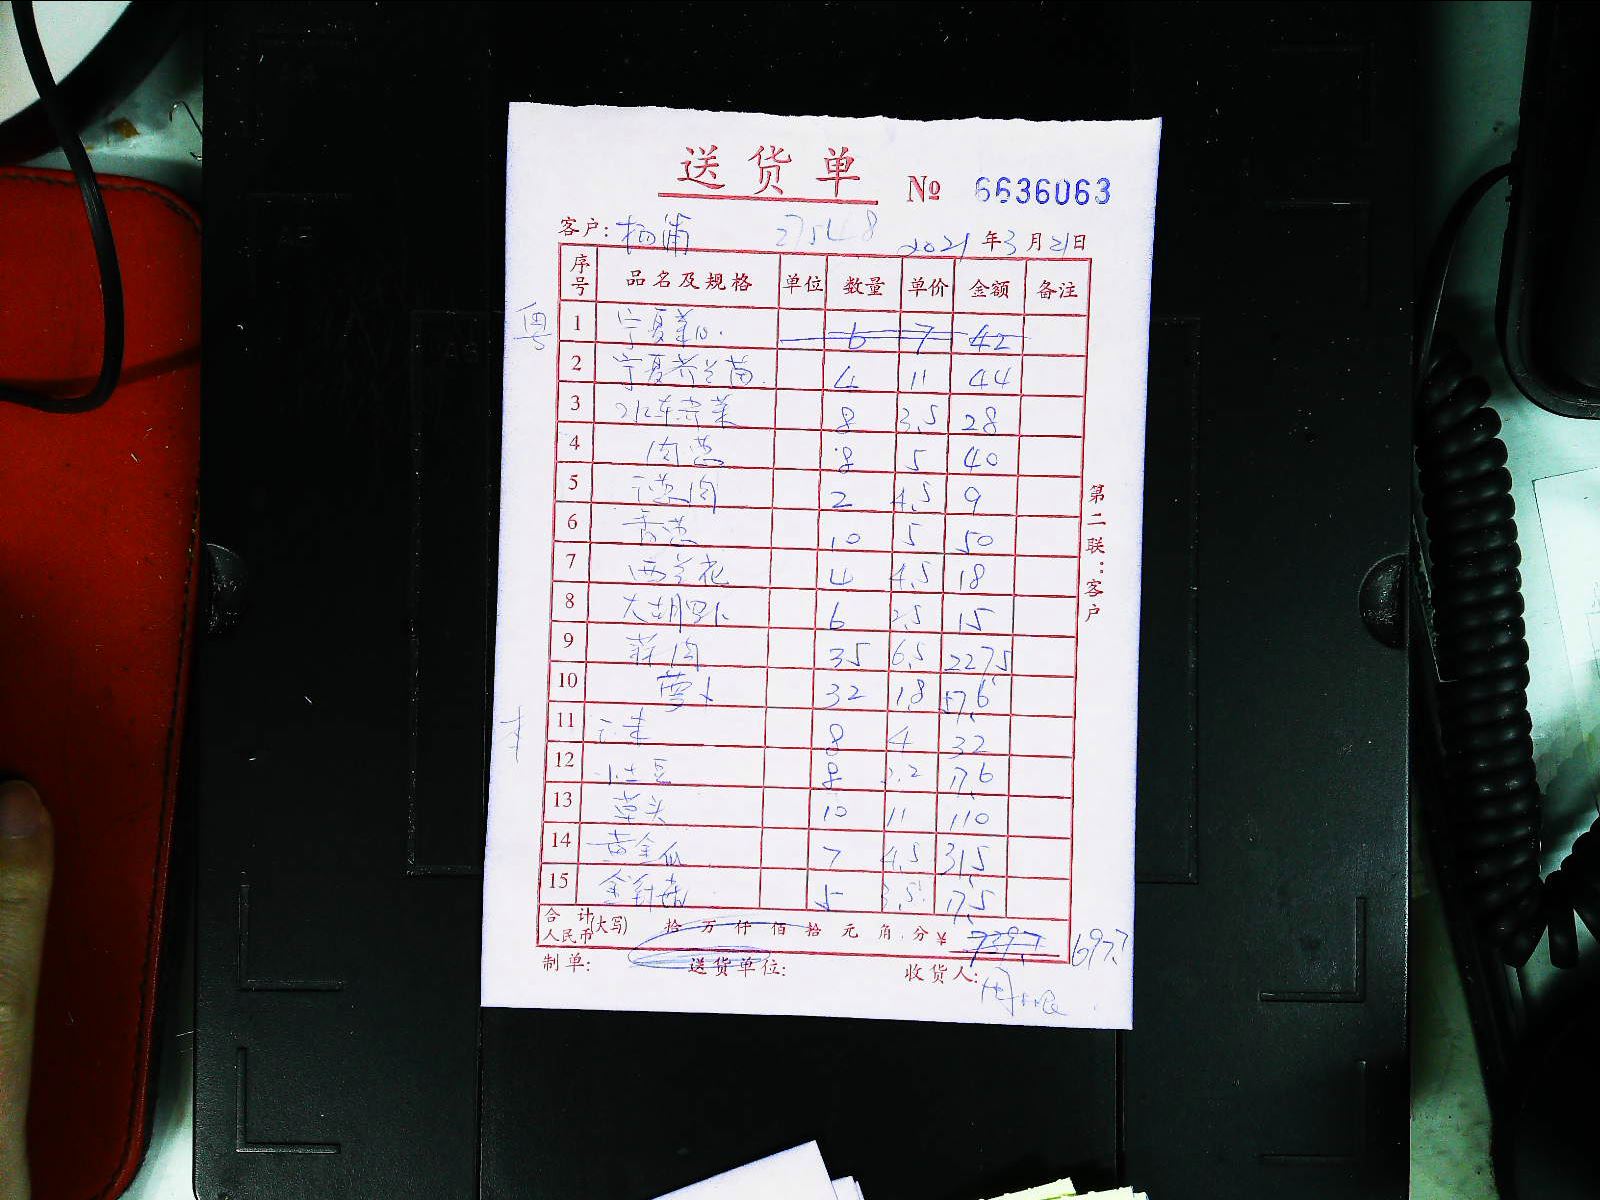 送货单 № 6636063
客户: 杨浦 27548 2021年3月21日
序号 品名及规格 单位 数量 单价 金额 备注
粤 1 宁夏菜心 6 7 42
2 宁夏芥兰苗 4 11 44
3 8 3.5 28
4 肉葱 8 5 40
5 2 4.5 9
6 香葱 10 5 50
7 西兰花 4 4.5 18
8 大胡萝卜 6 2.5 15
9 35 6.5 227.5
10 萝卜 32 1.8 57.6
本 11 8 4 32
12 小土豆 8 2.2 17.6
13 草头 10 11 110
14 黄金瓜 7 4.5 31.5
15 金针菇 5 3.5 17.5
合计人民币(大写) 拾 万 仟 佰 拾 元 角 分 ¥ 739.7 697.7
制单: 送货单位: 收货人:
第二联:客户